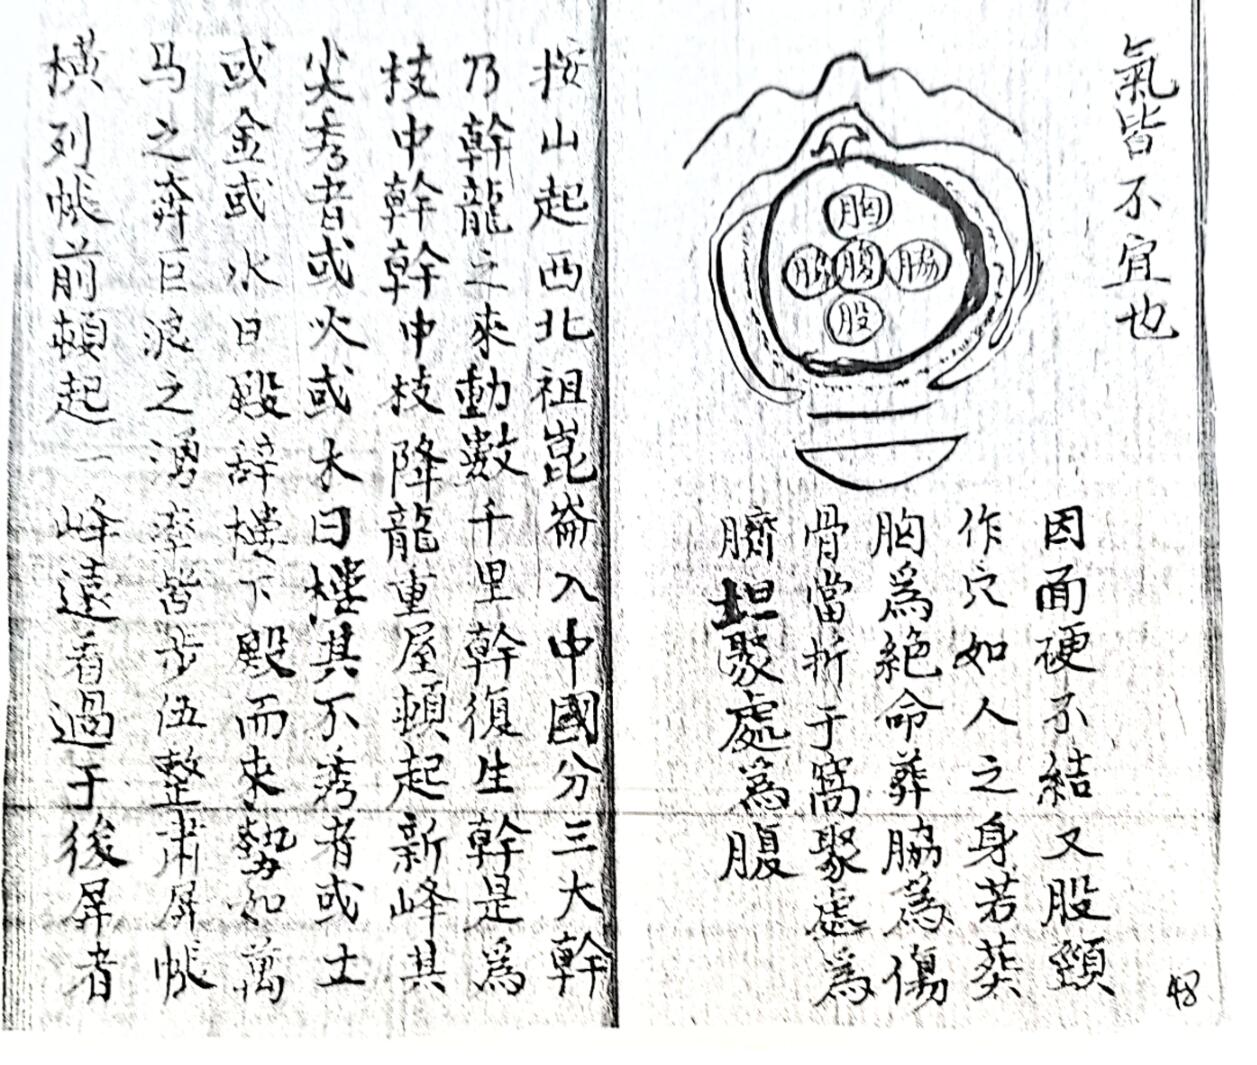 氣皆不宜也
胸
脇腹脇
股
因面硬不結又股頸
作穴如人之身若葵
胸爲絕命葬脇為傷
骨當折于窩聚處為
臍坦聚處為腹
48
按山起西北祖崑崙入中國分三大幹
乃幹龍之來動數千里幹復生幹是爲
枝中幹幹中枝降龍重屋頓起新峰其
尖秀者或火或木曰樓其不秀者或土
或金或水曰殿辞樓下殿而來勢如萬
马之奔巨浪之湧率皆步伍整肅屏帐
横列帐前頓起一峰遠看過于後屏者